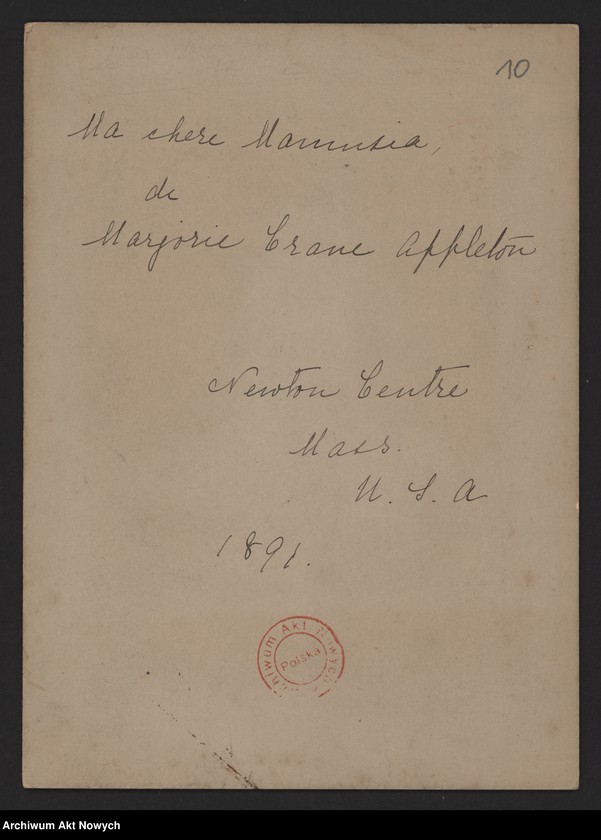 10
Ma chere Mamusia,
de
Marjorie Crane Appleton
Newton Centre
Mass.
U. S. A
1891.
Archiwum Akt Nowych
Polska
Archiwum Akt Nowych